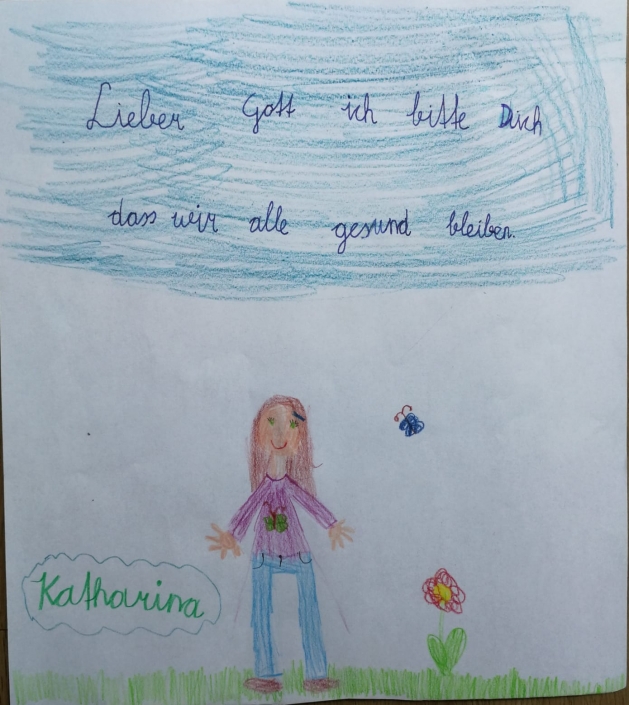 Lieber Gott ich bitte Dich
dass wir alle gesund bleiben.
Katharina